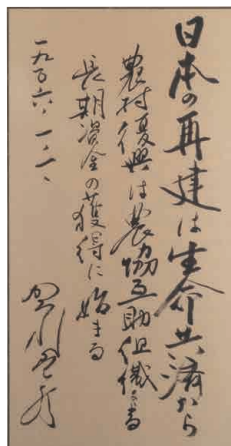 日本の再建は生命共済から
農村復興は農協互助組織による
長期資金の獲得に始まる
一九五六・一・一、
賀川豊彦